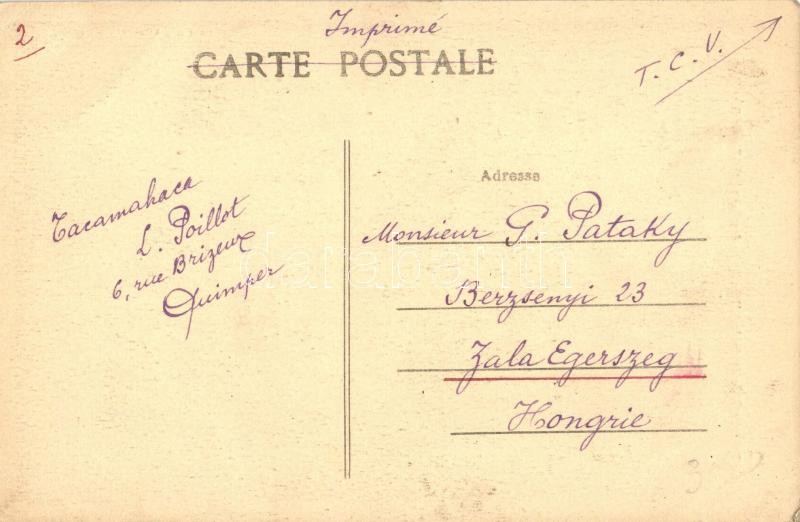 2
Imprimé
CARTE POSTALE
T. C. V.
Tacamahaca
L. Poillot
6, rue Brizeux
Quimper
Adresse
Monsieur G. Pataky
Berzsenyi 23
Zala Egerszeg
Hongrie
darabanth